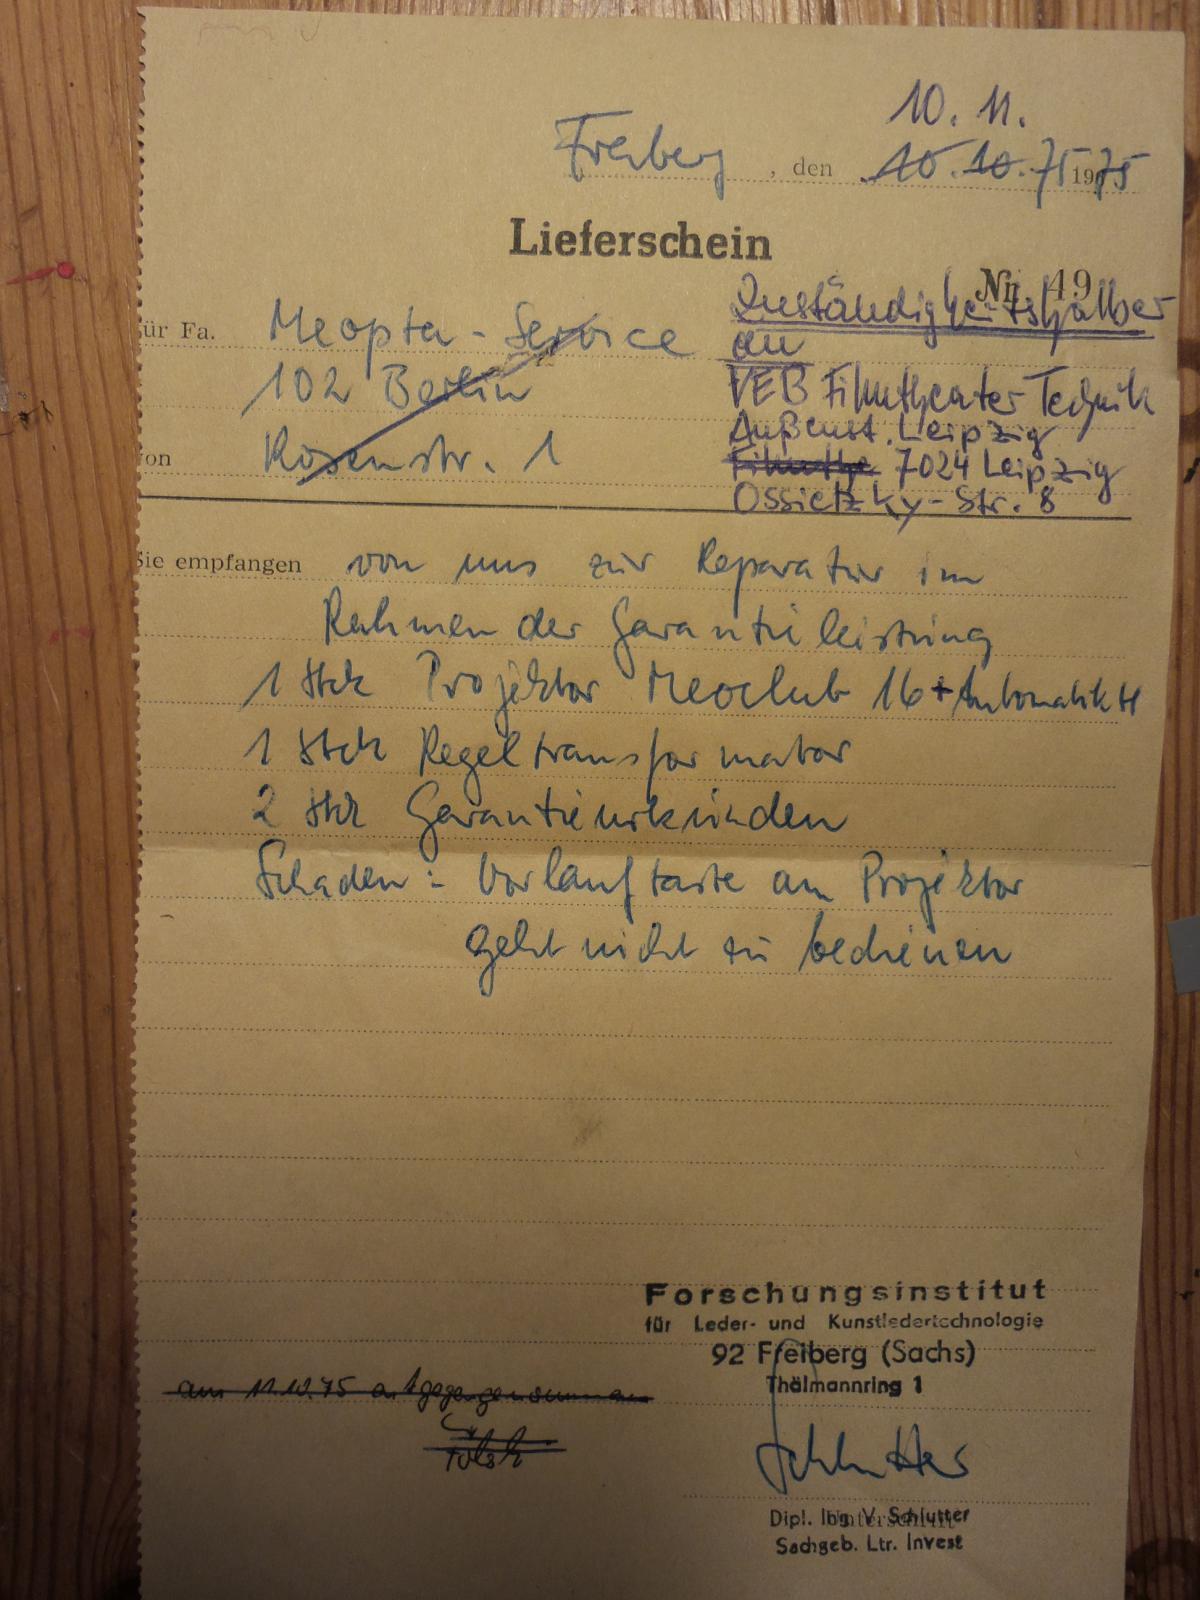 10. 11.
Freiberg, den 10.10.75 1975
Lieferschein
Nr. 49
für Fa. Meopta-Service
102 Berlin
von Rosenstr. 1
Zuständigkeitshalber
an
VEB Filmtheater Technik
Außenst. Leipzig
Filmthe 7024 Leipzig
Ossietzky-Str. 8
Sie empfangen von uns zur Reparatur im
Rahmen der Garantieleistung
1 Stck Projektor Meoclub 16 + Automatik
1 Stck Regeltransformator
2 Stck Garantieurkunden
Schaden: Vorlauftaste am Projektor
geht nicht zu bedienen
Forschungsinstitut
für Leder- und Kunstledertechnologie
92 Freiberg (Sachs)
Thälmannring 1
am 11.10.75 entgegengenommen
Schlutter
Unterschrift
Dipl. Ing. V. Schlutter
Sachgeb. Ltr. Invest